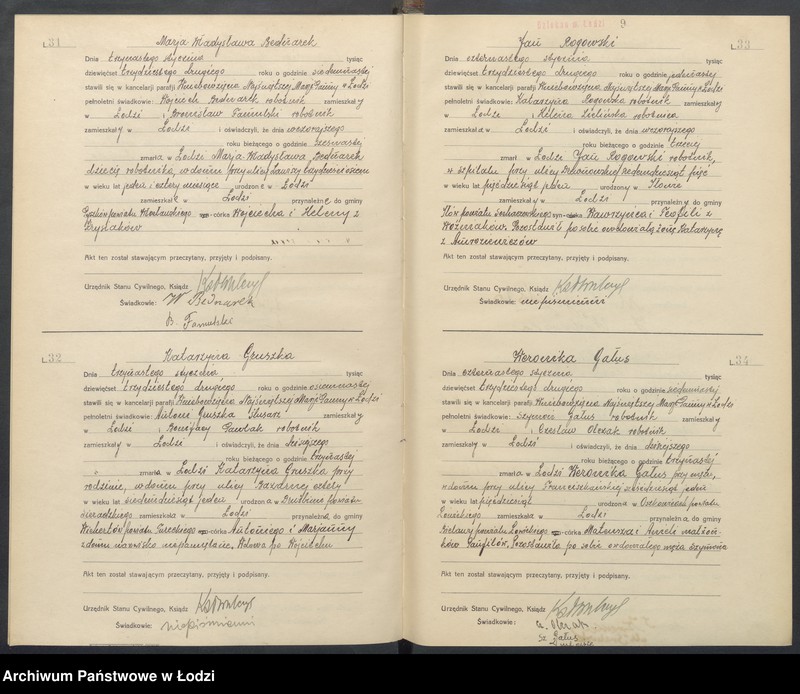 L. 31
Marja Władysława Bednarek
Dnia trzynastego stycznia tysiąc
dziewięćset trzydziestego drugiego roku o godzinie siedemnastej
stawili się w kancelarji parafji Wniebowzięcia Najświętszej Marji Panny w Łodzi
pełnoletni świadkowie: Wojciech Bednarek robotnik zamieszkały
w Łodzi i Bronisław Famulski robotnik
zamieszkały w Łodzi i oświadczyli, że dnia wczorajszego
roku bieżącego o godzinie
zmarła w Łodzi Marja Władysława Bednarek
dziecię robotnika, w domu przy ulicy
w wieku lat jeden i cztery miesiące urodzona w Łodzi
zamieszkała w Łodzi przynależna do gminy
powiatu córka Wojciecha i Heleny z
Akt ten został stawającym przeczytany, przyjęty i podpisany.
Urzędnik Stanu Cywilnego, Ksiądz
Świadkowie: W Bednarek
B. Famulski
L. 32
Katarzyna Gruszka
Dnia trzynastego stycznia tysiąc
dziewięćset trzydziestego drugiego roku o godzinie osiemnastej
stawili się w kancelarji parafji Wniebowzięcia Najświętszej Marji Panny w Łodzi
pełnoletni świadkowie: Antoni Gruszka ślusarz zamieszkały
w Łodzi i Bonifacy Pawlak robotnik
zamieszkały w Łodzi i oświadczyli, że dnia dzisiejszego
roku bieżącego o godzinie trzynastej
zmarła w Łodzi Katarzyna Gruszka, przy
rodzinie, w domu przy ulicy cztery
w wieku lat siedemdziesiąt jeden urodzona w powiatu
sieradzkiego zamieszkała w Łodzi przynależna do gminy
powiatu Tureckiego córka Antoniego i Marjanny
z domu nazwisko niepamiętane. Wdowa po Wojciechu
Akt ten został stawającym przeczytany, przyjęty i podpisany.
Urzędnik Stanu Cywilnego, Ksiądz
Świadkowie: niepiśmienni
9
L. 33
Jan Rogowski
Dnia czternastego stycznia tysiąc
dziewięćset trzydziestego drugiego roku o godzinie jedenastej
stawili się w kancelarji parafji Wniebowzięcia Najświętszej Marji Panny w Łodzi
pełnoletni świadkowie: Katarzyna Rogowska robotnica zamieszkały
w Łodzi i Helena Zielińska robotnica
zamieszkała w Łodzi i oświadczyli, że dnia wczorajszego
roku bieżącego o godzinie
zmarł w Łodzi Jan Rogowski robotnik,
w szpitalu przy ulicy siedemdziesiąt pięć
w wieku lat pięćdziesiąt urodzony w Iłowie
zamieszkały w Łodzi przynależny do gminy
Iłów powiatu Sochaczewskiego syn Wawrzyńca i Teofili z
Woźniaków. Pozostawił po sobie owdowiałą żonę Katarzynę
z
Akt ten został stawającym przeczytany, przyjęty i podpisany.
Urzędnik Stanu Cywilnego, Ksiądz
Świadkowie: niepiśmienni
L. 34
Weronika Gałus
Dnia czternastego stycznia tysiąc
dziewięćset trzydziestego drugiego roku o godzinie siedemnastej
stawili się w kancelarji parafji Wniebowzięcia Najświętszej Marji Panny w Łodzi
pełnoletni świadkowie: Szymon Gałus robotnik zamieszkały
w Łodzi i Czesław Olczak robotnik
zamieszkały w Łodzi i oświadczyli, że dnia dzisiejszego
roku bieżącego o godzinie trzynastej
zmarła w Łodzi Weronika Gałus przy mężu,
w domu przy ulicy Franciszkańskiej jeden
w wieku lat pięćdziesiąt urodzona w powiatu
Łowickiego zamieszkała w Łodzi przynależna do gminy
Bielawy powiatu Łowickiego córka Mateusza i Anieli małżon-
ków Panfilów. Pozostawiła po sobie owdowiałego męża Szymona
Akt ten został stawającym przeczytany, przyjęty i podpisany.
Urzędnik Stanu Cywilnego, Ksiądz
Świadkowie: A. Olczak
Sz Gałus
Archiwum Państwowe w Łodzi